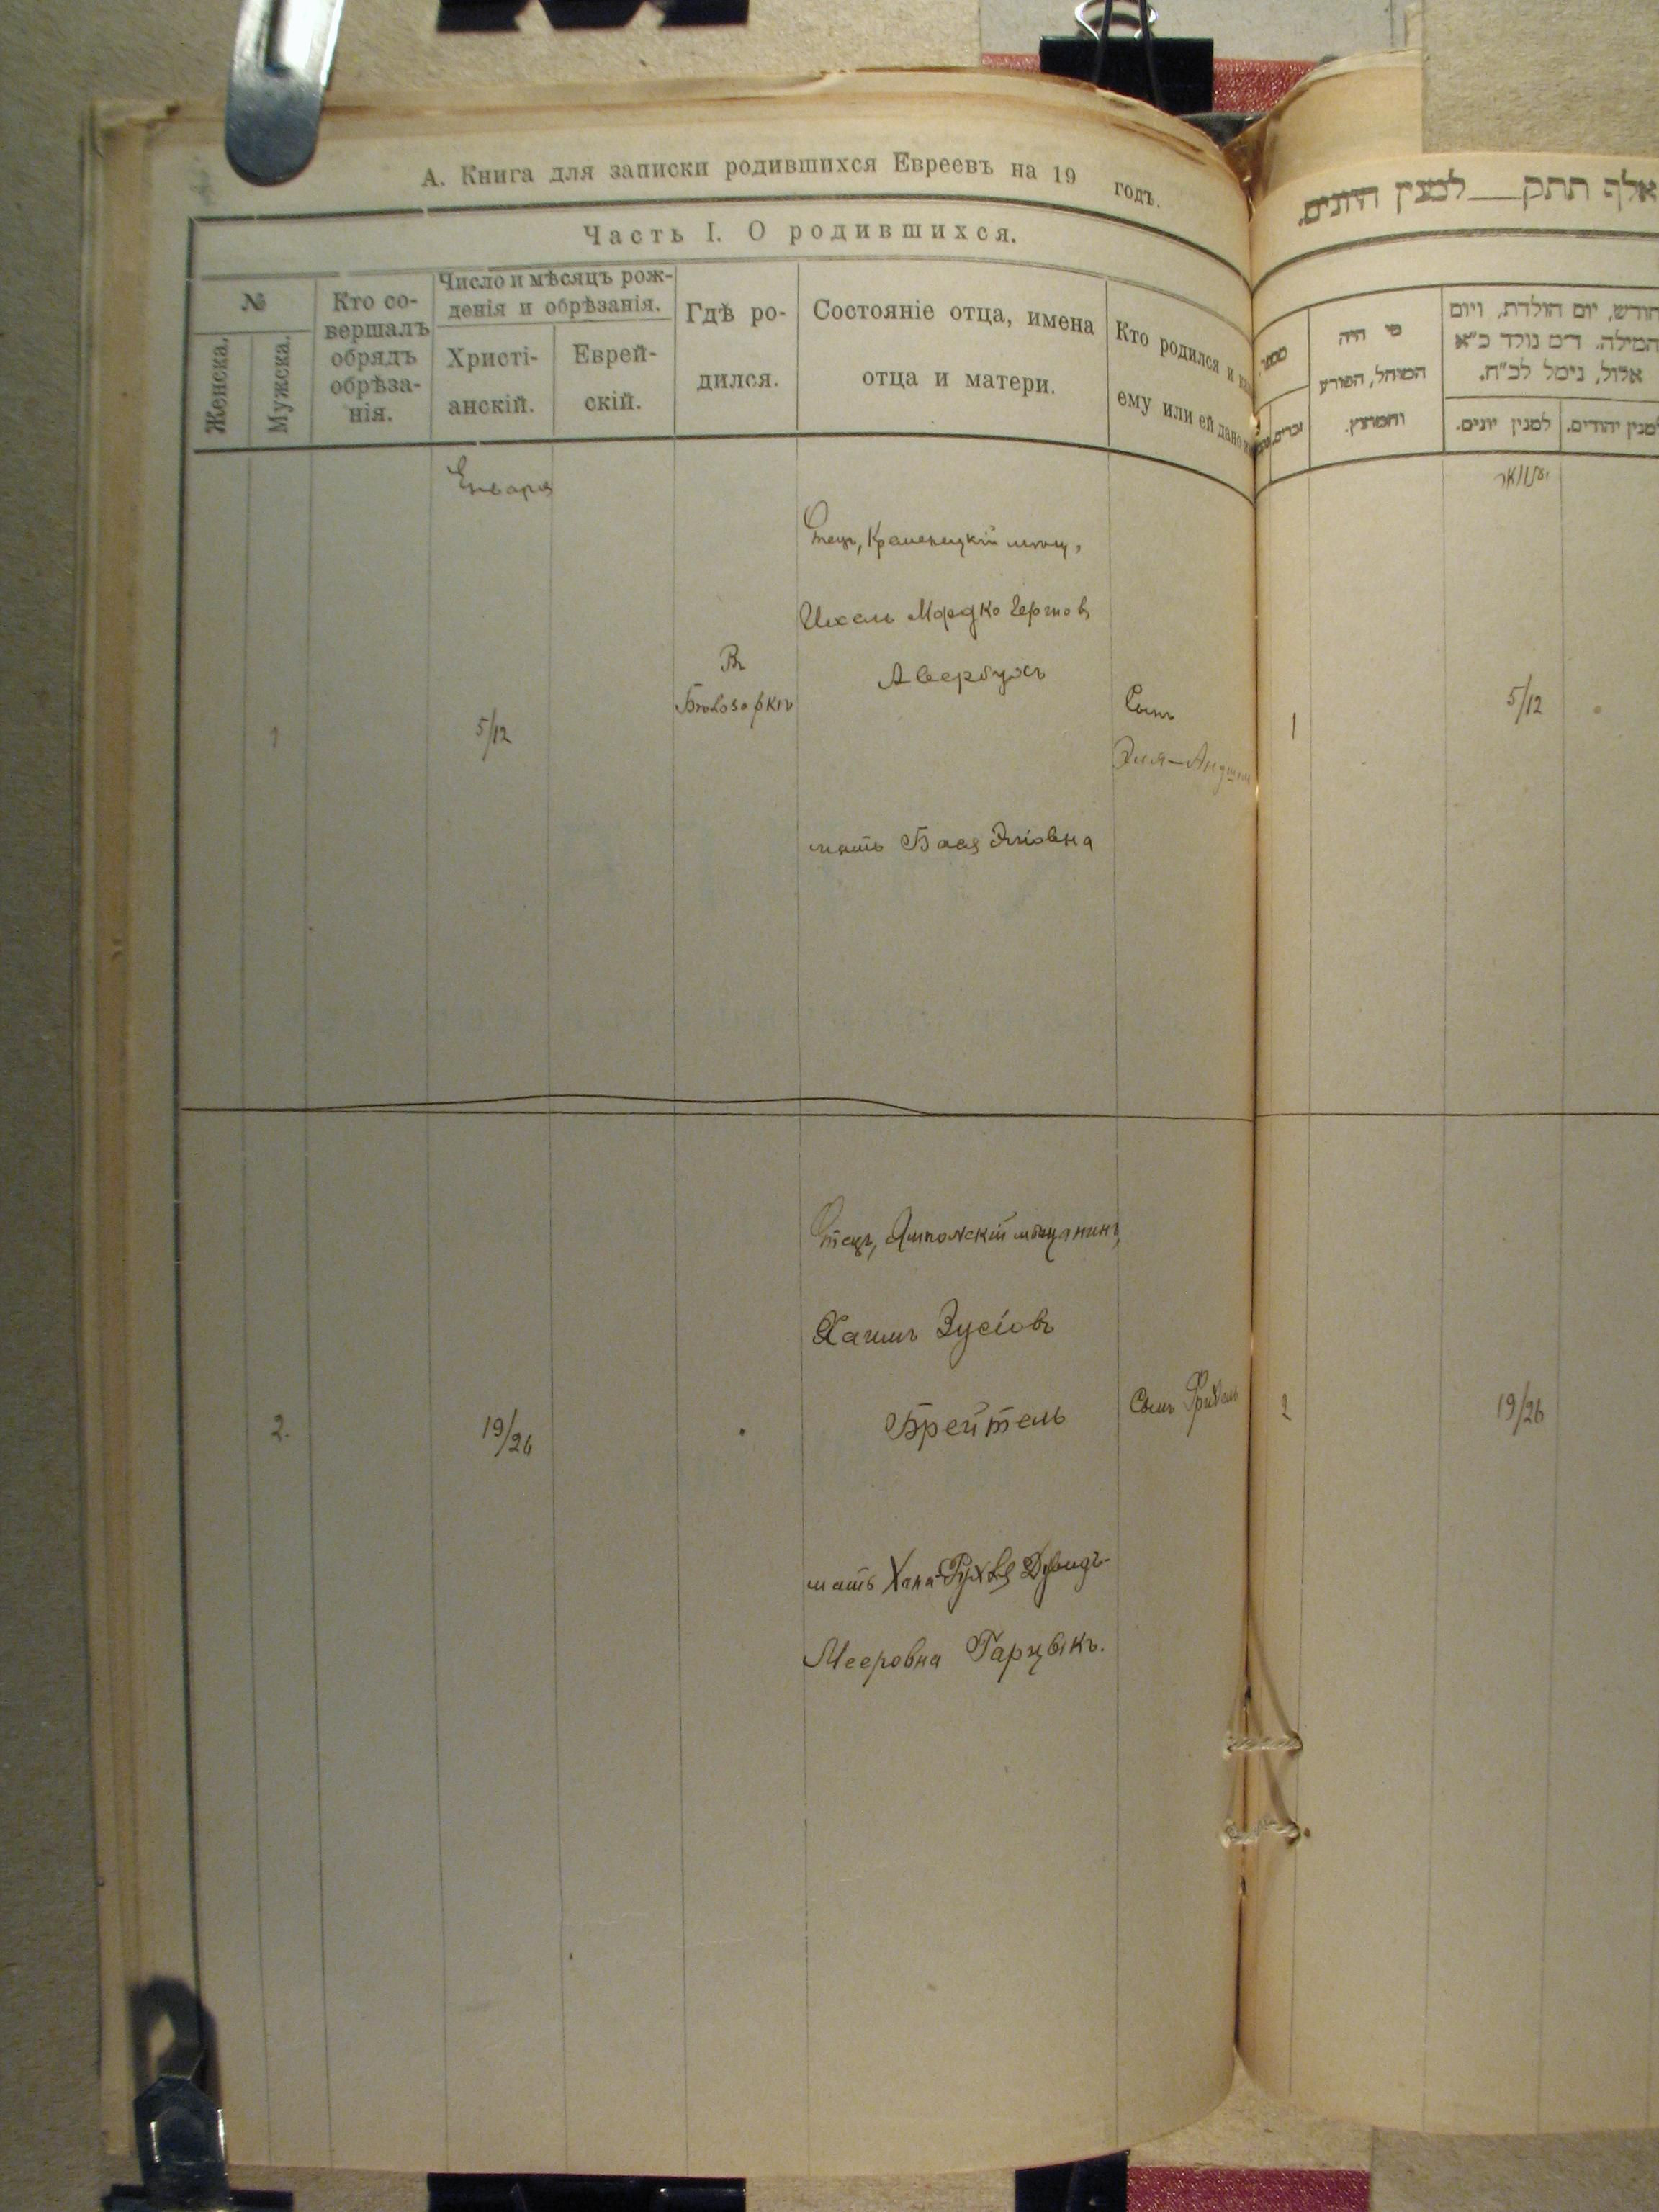 А. Книга для записки родившихся Евреевъ на 19 годъ.
Часть I. О родившихся.
№
Женска.
Мужска.
Кто со-
вершалъ
обрядъ
обрѣза-
нія.
Число и мѣсяцъ рож-
денія и обрѣзанія.
Христі-
анскій.
Еврей-
скій.
Гдѣ ро-
дился.
Состояніе отца, имена
отца и матери.
Кто родился и
ему или ей дано
Января
1
5/12
Въ
Бѣлозоркѣ
Отецъ, Кременецкій мѣщ,
Ихель Мордко Гершов
Авербухъ
мать Бася Эліовна
Сынъ
Эля-
2.
19/26
Отецъ, Ямпольскій мѣщанинъ,
Хаимъ Зусіовъ
Брейтель
мать Хана Рухля Дувидъ-
Мееровна Гарцыкъ.
Сынъ
אלף תתק למנין היונים.
מספר
זכרים
מי היה
המוהל, הפורע
והמוצץ.
חודש, יום הולדת, ויום
המילה. ד״מ נולד כ״א
אלול, נימל לכ״ח.
למנין יונים.
למנין יהודים.
יאנואר
1
5/12
2
19/26